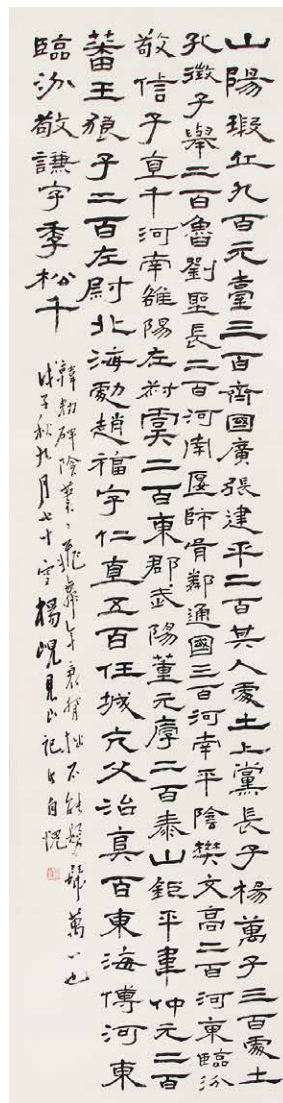 山陽瑕丘九百元臺三百齊國廣張建平二百其人處士上黨長子楊萬子三百處士
孔徵子舉二百魯劉聖長二百河南匽師胥鄰通國三百河南平陰樊文高二百河東臨汾
敬信子直千河南雒陽左尉虞二百東郡武陽董元厚二百泰山鉅平韋仲元二百
蕃王狼子二百左尉北海劇趙福字仁直五百任城亢父治真百東海傅河東
臨汾敬謙字季松千
韓勑碑陰葉葉飛舞年衰臂拙不能髣髴萬一也
戊子秋九月七十叟楊峴見山記以自愧